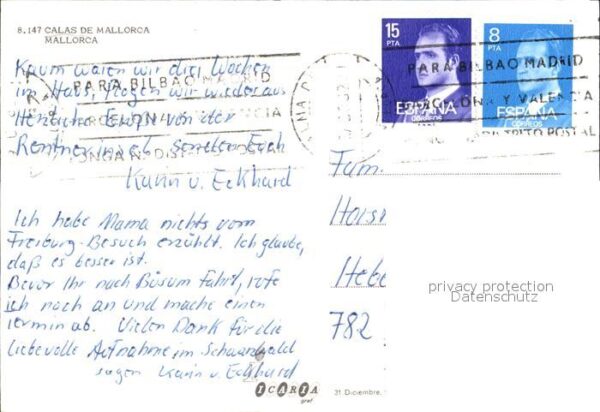 8.147 CALAS DE MALLORCA
MALLORCA
15
PTA
8
PTA
ESPAÑA
CORREOS
ESPAÑA
CORREOS
PARA BILBAO MADRID
PARA BILBAO MADRID
Y VALENCIA
DISTRITO POSTAL
Kaum waren wir drei Wochen
im Haus, flogen wir wieder aus
Herzliche Grüße von der
Rentnerinsel senden Euch
Karin u. Eckhard
Ich habe Mama nichts vom
Freiburg-Besuch erzählt. Ich glaube,
daß es besser ist.
Bevor Ihr nach Büsum fahrt, rufe
ich noch an und mache einen
Termin ab. Vielen Dank für die
liebevolle Aufnahme im Schwarzwald
sagen Karin u. Eckhard
Fam.
Horst
Hebe
782
privacy protection
Datenschutz
ICARIA
graf
31 Diciembre,